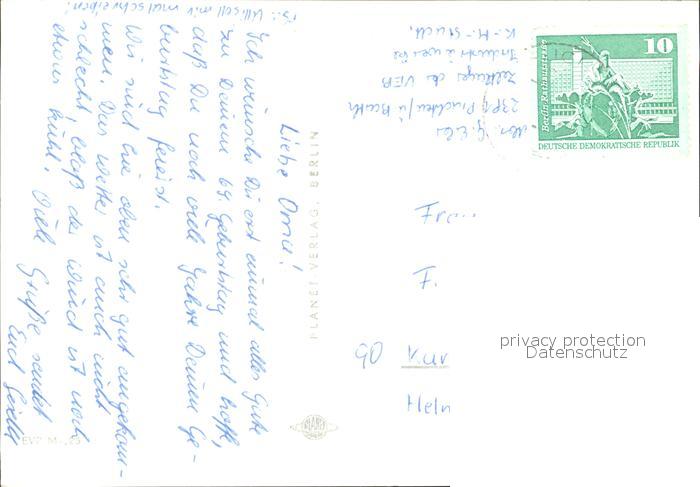 Liebe Oma!
Ich wünsche Dir erst einmal alles Gute
zu Deinem 69. Geburtstag und hoffe,
daß Du noch viele Jahre Deinen Ge-
burtstag feierst.
Wir sind hie oben sehr gut angekom-
men. Das Wetter ist auch nicht
schlecht, bloß der Wind ist noch
etwas kühl. Viele Grüße sendet
Euch
mir mal schreiben!
PLANET-VERLAG, BERLIN
EVP M -,25
10
Berlin, Rathausstraße
DEUTSCHE DEMOKRATISCHE REPUBLIK
2381
Zeltlager des VEB
K.-M.-Stadt
privacy protection
Datenschutz